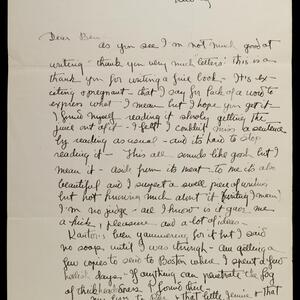 Dear Ben
as you see I'm not much good at
writing - thank you very much letters! this is a
thank you for writing a fine book - It's ex-
citing & pregnant - that I say for lack of a word to
express what I mean but I hope you get it -
I found myself reading it slowly getting the
juice out of it - I felt I couldn't miss a sentence
by reading as usual - and its hard to stop
reading it - This all sounds like gosh but I
mean it - aside from its meat - to me its also
beautiful and I suspect a swell piece of writing
but not knowing much about it (writing I mean)
I'm no judge - all I know is it gives me
a kick, pleasure and a lot of ideas -
been yammering for it but I said
no soap until I was through - Am getting a
few copies to send to Boston where I spent a few
days - If anything can penetrate the fog
of thickheadedness I found there -
My love to + that little + that